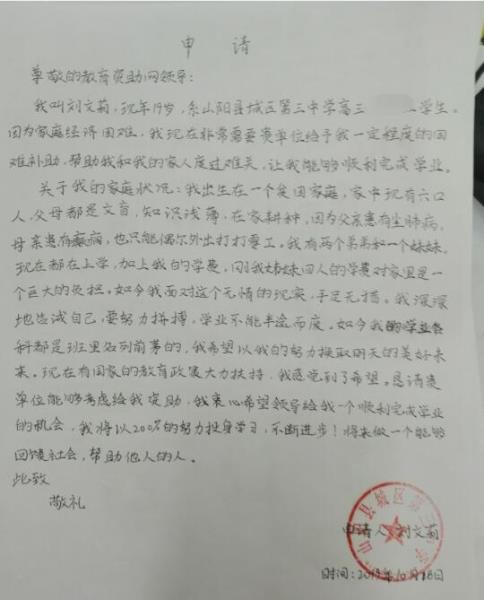 申 请
尊敬的教育资助网领导：
我叫刘文菊，现年19岁，系山阳县城区第三中学高三 学生。
因为家庭经济困难，我现在非常需要贵单位给予我一定程度的困
难补助，帮助我和我的家人度过难关，让我能够顺利完成学业。
关于我的家庭状况：我出生在一个贫困家庭，家中现有六口
人，父母都是文盲，知识浅薄，在家耕种，因为父亲患有尘肺病，
母亲患有癫痫，也只能偶尔外出打打零工，我有两个弟弟和一个妹妹，
现在都在上学，加上我的学费，同我姊妹四人的学费对家里是一
个巨大的负担。如今我面对这个无情的现实，手足无措。我深深
地告诫自己，要努力拼搏，学业不能半途而废。如今我的学业各
科都是班里名列前茅的，我希望以我的努力换取明天的美好未
来。现在有国家的教育政策大力扶持，我感觉到了希望。恳请贵
单位能够考虑给我资助，我衷心希望领导给我一个顺利完成学业
的机会，我将以200%的努力投身学习，不断进步！将来做一个能够
回馈社会，帮助他人的人。
此致
敬礼
申请人：刘文菊
时间：2019年10月28日
山阳县城区第三中学